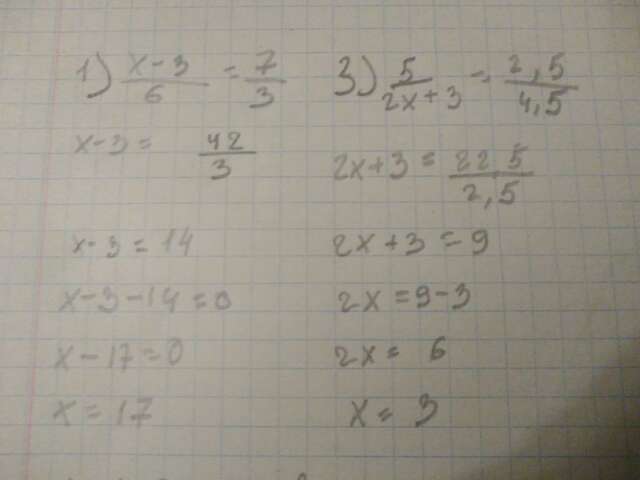 1) x-3/6 = 7/3
x-3 = 42/3
x-3 = 14
x-3-14=0
x-17=0
x=17
3) 5/2x+3 = 2,5/4,5
2x+3 = 22,5/2,5
2x+3=9
2x=9-3
2x= 6
x= 3